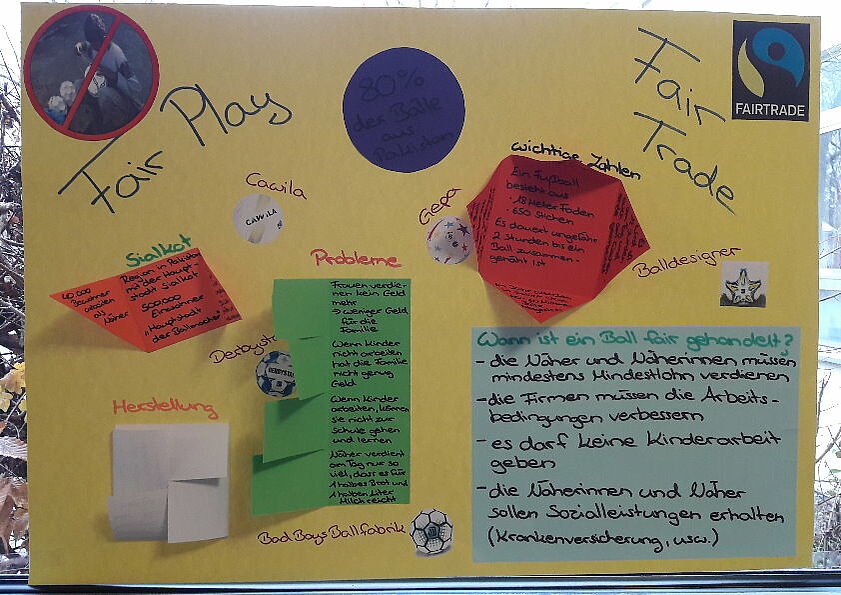 Fair Play
80%
der Bälle
aus
Pakistan
Fair
Trade
FAIRTRADE
Cawila
CAWILA
Gepa
wichtige Zahlen
Ein Fußball
besteht aus
· 18 Meter Faden
· 650 Stichen
Es dauert ungefähr
2 Stunden bis ein
Ball zusammen-
genäht ist
Balldesigner
Sialkot
40 000
Bewohner
arbeiten
als
Näher
Region in Pakistan
mit der Haupt-
stadt Sialkot
500 000
Einwohner
"Hauptstadt
der Ballmacher"
Probleme
Frauen verdie-
nen kein Geld
mehr
→ weniger Geld
für die
Familie
Wenn Kinder
nicht arbeiten
hat die Familie
nicht genug
Geld
Wenn Kinder
arbeiten, können
sie nicht zur
Schule gehen
und lernen
Näher verdient
am Tag nur so
viel, dass es für
1 halbes Brot und
1 halben Liter
Milch reicht
DERBYSTAR
Herstellung
Bad Boys Ballfabrik
Wann ist ein Ball fair gehandelt?
- die Näher und Näherinnen müssen
mindestens Mindestlohn verdienen
- die Firmen müssen die Arbeits-
bedingungen verbessern
- es darf keine Kinderarbeit
geben
- die Näherinnen und Näher
sollen Sozialleistungen erhalten
(Krankenversicherung, usw.)